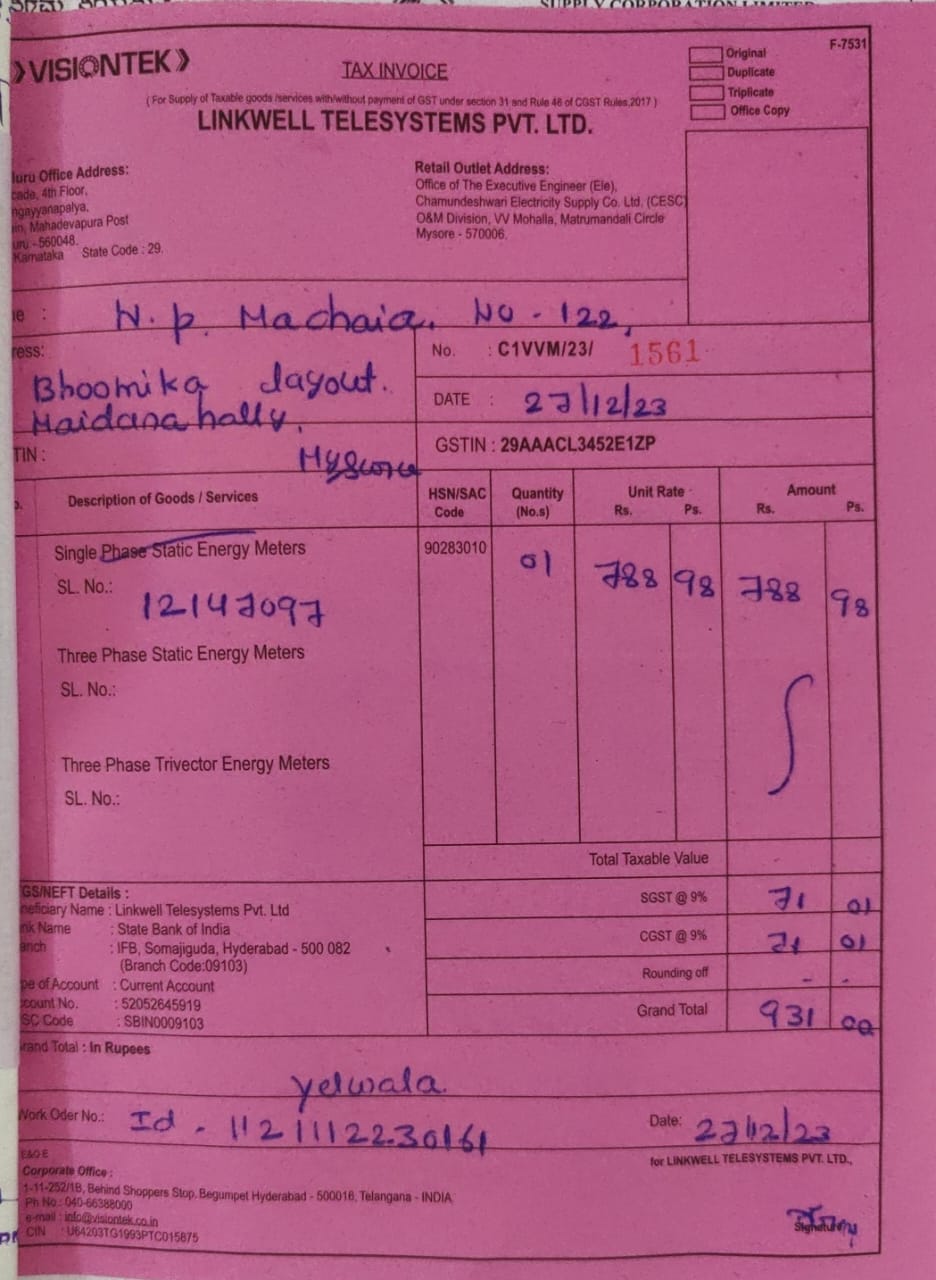 SUPPLY CORPORATION LIMITED
F-7531
VISIONTEK
TAX INVOICE
Original
Duplicate
Triplicate
Office Copy
( For Supply of Taxable goods /services with/without payment of GST under section 31 and Rule 46 of CGST Rules,2017 )
LINKWELL TELESYSTEMS PVT. LTD.
luru Office Address:
cade, 4th Floor,
ngayyanapalya,
in, Mahadevapura Post
uru - 560048.
Karnataka State Code : 29.
Retail Outlet Address:
Office of The Executive Engineer (Ele),
Chamundeshwari Electricity Supply Co. Ltd. (CESC)
O&M Division, VV Mohalla, Matrumandali Circle
Mysore - 570006.
e : N. P. Machaia. NO - 122,
ress:
Bhoomika layout.
Maidanahally,
Mysore
TIN :
No. : C1VVM/23/ 1561
DATE : 27/12/23
GSTIN : 29AAACL3452E1ZP
Description of Goods / Services HSN/SAC Code Quantity (No.s) Unit Rate Rs. Ps. Amount Rs. Ps.
Single Phase Static Energy Meters 90283010 01 788 98 788 98
SL. No.:
12147097
Three Phase Static Energy Meters
SL. No.:
Three Phase Trivector Energy Meters
SL. No.:
Total Taxable Value
SGST @ 9% 71 01
CGST @ 9% 71 01
Rounding off - -
Grand Total 931 00
GS/NEFT Details :
neficiary Name : Linkwell Telesystems Pvt. Ltd
nk Name : State Bank of India
anch : IFB, Somajiguda, Hyderabad - 500 082
(Branch Code:09103)
pe of Account : Current Account
count No. : 52052645919
SC Code : SBIN0009103
rand Total : In Rupees
Yelwala
Work Oder No.: Id - 11211122230161
Date: 27/12/23
E&O.E
for LINKWELL TELESYSTEMS PVT. LTD.,
Corporate Office :
1-11-252/1B, Behind Shoppers Stop, Begumpet Hyderabad - 500016, Telangana - INDIA
Ph No : 040-66388000
e-mail : info@visiontek.co.in
CIN : U64203TG1993PTC015875
Signature